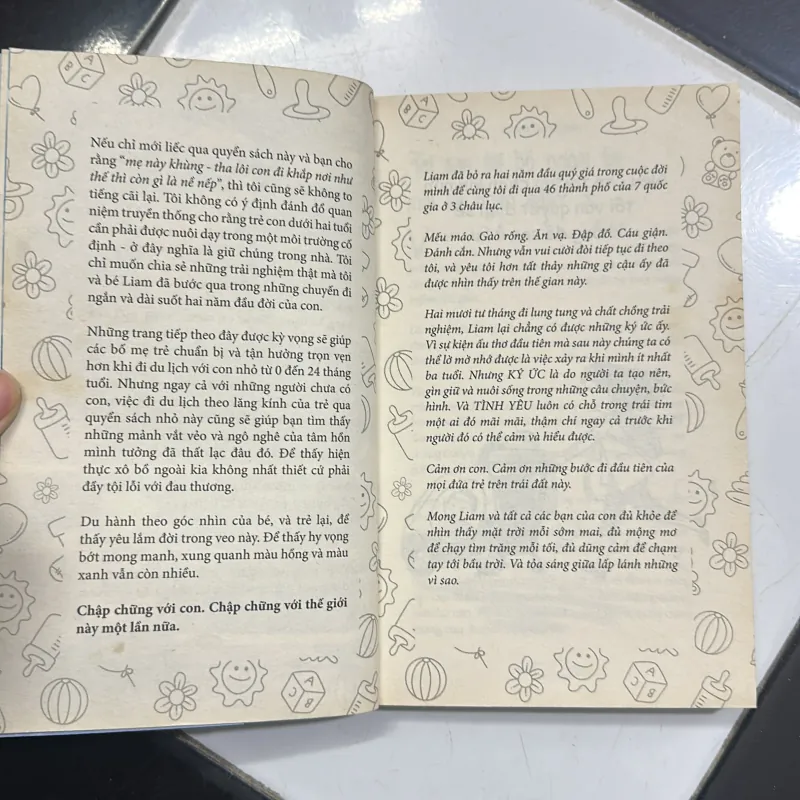 Nếu chỉ mới liếc qua quyển sách này và bạn cho
rằng "mẹ này khùng - tha lôi con đi khắp nơi như
thế thì còn gì là nề nếp", thì tôi cũng sẽ không to
tiếng cãi lại. Tôi không có ý định đánh đổ quan
niệm truyền thống cho rằng trẻ con dưới hai tuổi
cần phải được nuôi dạy trong một môi trường cố
định - ở đây nghĩa là giữ chúng trong nhà. Tôi
chỉ muốn chia sẻ những trải nghiệm thật mà tôi
và bé Liam đã bước qua trong những chuyến đi
ngắn và dài suốt hai năm đầu đời của con.
Những trang tiếp theo đây được kỳ vọng sẽ giúp
các bố mẹ trẻ chuẩn bị và tận hưởng trọn vẹn
hơn khi đi du lịch với con nhỏ từ 0 đến 24 tháng
tuổi. Nhưng ngay cả với những người chưa có
con, việc đi du lịch theo lăng kính của trẻ qua
quyển sách nhỏ này cũng sẽ giúp bạn tìm thấy
những mảnh vắt vẻo và ngô nghê của tâm hồn
mình tưởng đã thất lạc đâu đó. Để thấy hiện
thực xô bồ ngoài kia không nhất thiết cứ phải
đầy tội lỗi với đau thương.
Du hành theo góc nhìn của bé, và trẻ lại, để
thấy yêu lắm đời trong veo này. Để thấy hy vọng
bớt mong manh, xung quanh màu hồng và màu
xanh vẫn còn nhiều.
Chập chững với con. Chập chững với thế giới
này một lần nữa.
Liam đã bỏ ra hai năm đầu quý giá trong cuộc đời
mình để cùng tôi đi qua 46 thành phố của 7 quốc
gia ở 3 châu lục.
Mếu máo. Gào rống. Ăn vạ. Đập đồ. Cáu giận.
Đánh cắn. Nhưng vẫn vui cười đòi tiếp tục đi theo
tôi, và yêu tôi hơn tất thảy những gì cậu ấy đã
được nhìn thấy trên thế gian này.
Hai mươi tư tháng đi lung tung và chất chồng trải
nghiệm, Liam lại chẳng có được những ký ức ấy.
Vì sự kiện ấu thơ đầu tiên mà sau này chúng ta có
thể lờ mờ nhớ được là việc xảy ra khi mình ít nhất
ba tuổi. Nhưng KÝ ỨC là do người ta tạo nên,
gìn giữ và nuôi sống trong những câu chuyện, bức
hình. Và TÌNH YÊU luôn có chỗ trong trái tim
một ai đó mãi mãi, thậm chí ngay cả trước khi
người đó có thể cảm và hiểu được.
Cảm ơn con. Cảm ơn những bước đi đầu tiên của
mọi đứa trẻ trên trái đất này.
Mong Liam và tất cả các bạn của con đủ khỏe để
nhìn thấy mặt trời mỗi sớm mai, đủ mộng mơ
để chạy tìm trăng mỗi tối, đủ dũng cảm để chạm
tay tới bầu trời. Và tỏa sáng giữa lấp lánh những
vì sao.